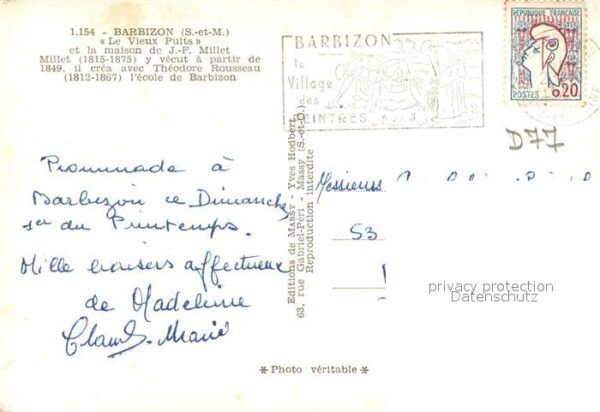 1.154 - BARBIZON (S.-et-M.)
« Le Vieux Puits »
et la maison de J.-F. Millet
Millet (1815-1875) y vécut à partir de
1849, il créa avec Théodore Rousseau
(1812-1867) l'école de Barbizon
BARBIZON
le
Village
des
PEINTRES
REPUBLIQUE FRANÇAISE
POSTES 0,20
D77
Promenade à
Barbizon ce Dimanche
1er du Printemps.
Mille baisers affectueux
de Madeleine
Claude. Marie
Editions de MASSY - Yves Hodbert
63, rue Gabriel-Péri - Massy (S.-et-O.)
Reproduction interdite
Messieurs
53
privacy protection
Datenschutz
* Photo véritable *